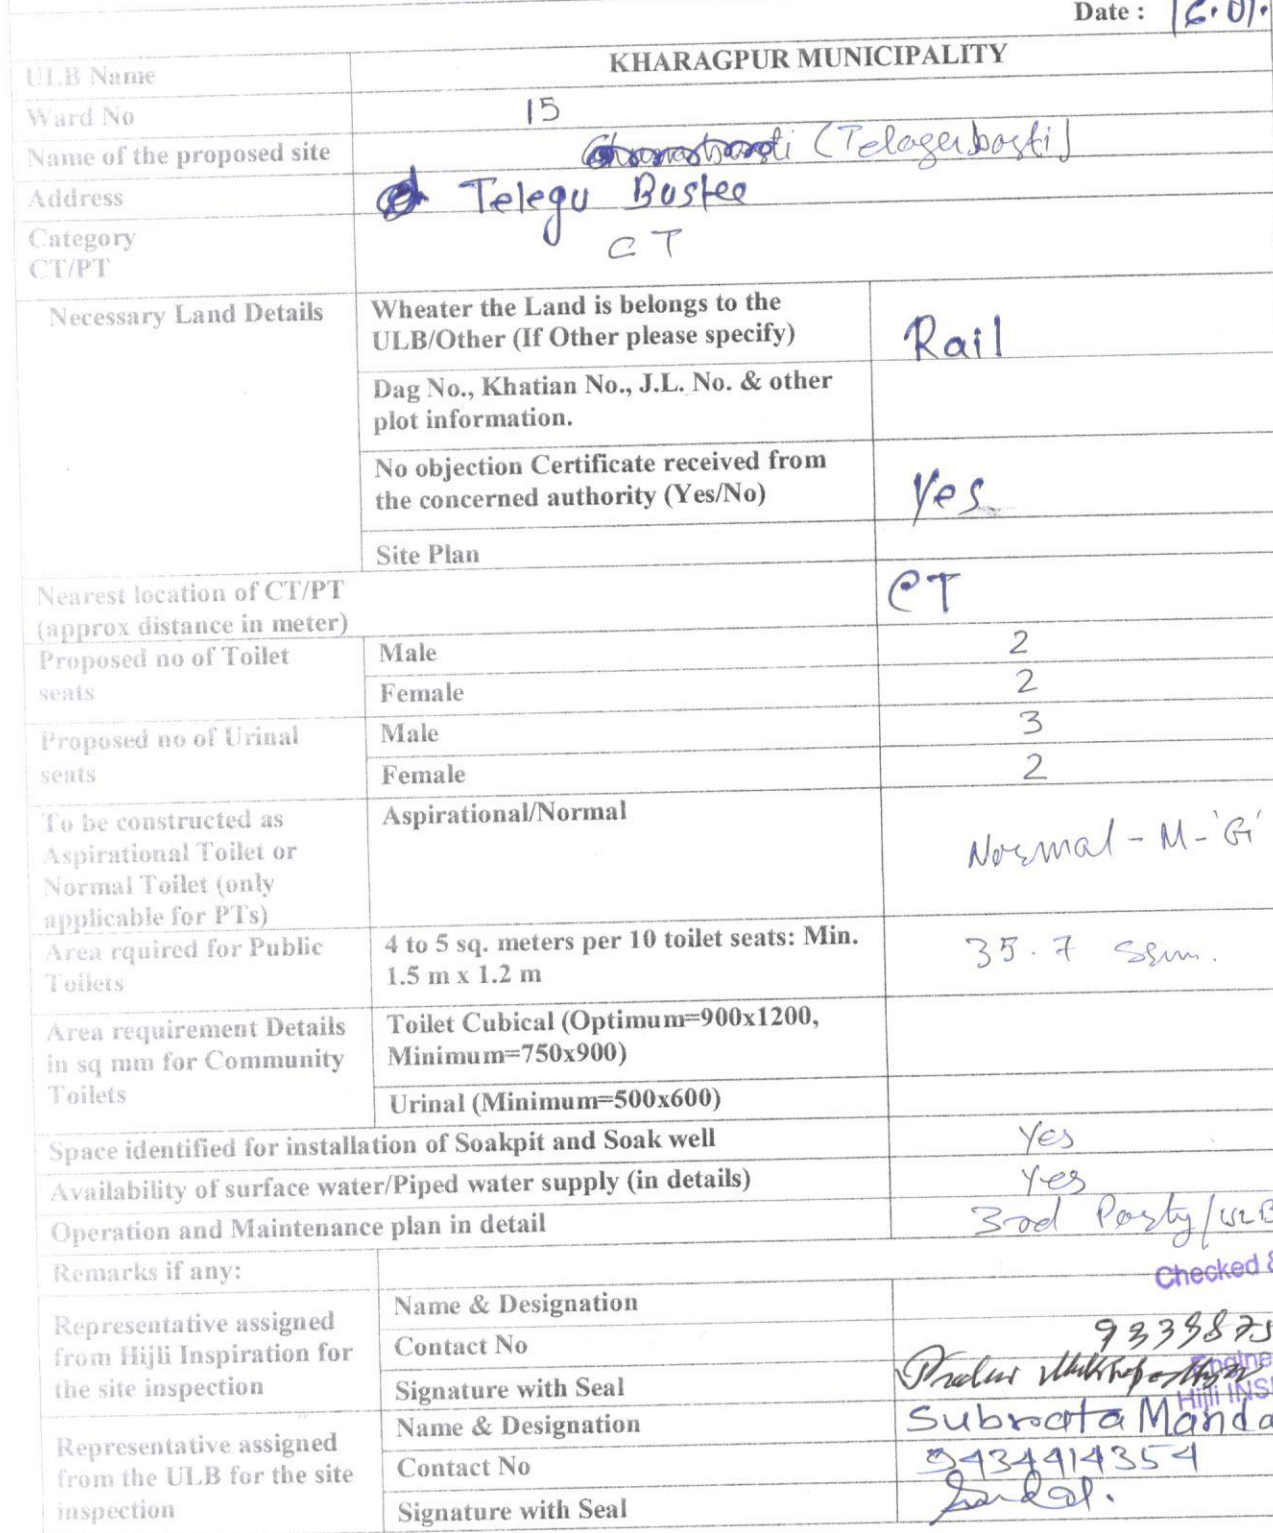 Date : 16.01.
ULB Name KHARAGPUR MUNICIPALITY
Ward No 15
Name of the proposed site (Telagerbasti)
Address Telegu Bustee
Category
CT/PT CT
Necessary Land Details Wheater the Land is belongs to the
ULB/Other (If Other please specify) Rail
Dag No., Khatian No., J.L. No. & other
plot information.
No objection Certificate received from
the concerned authority (Yes/No) Yes
Site Plan
Nearest location of CT/PT
(approx distance in meter) CT
Proposed no of Toilet
seats
Male 2
Female 2
Proposed no of Urinal
seats
Male 3
Female 2
To be constructed as
Aspirational Toilet or
Normal Toilet (only
applicable for PTs)
Aspirational/Normal
Normal - M - 'G'
Area rquired for Public
Toilets
4 to 5 sq. meters per 10 toilet seats: Min.
1.5 m x 1.2 m
35.7 Sqm.
Area requirement Details
in sq mm for Community
Toilets
Toilet Cubical (Optimum=900x1200,
Minimum=750x900)
Urinal (Minimum=500x600)
Space identified for installation of Soakpit and Soak well Yes
Availability of surface water/Piped water supply (in details) Yes
Operation and Maintenance plan in detail 3rd Party/ULB
Remarks if any:
Checked &
Representative assigned
from Hijli Inspiration for
the site inspection
Name & Designation
Contact No 9333875
Signature with Seal
Engine
Hijli INS
Representative assigned
from the ULB for the site
inspection
Name & Designation Subrata Manda
Contact No 9434414354
Signature with Seal